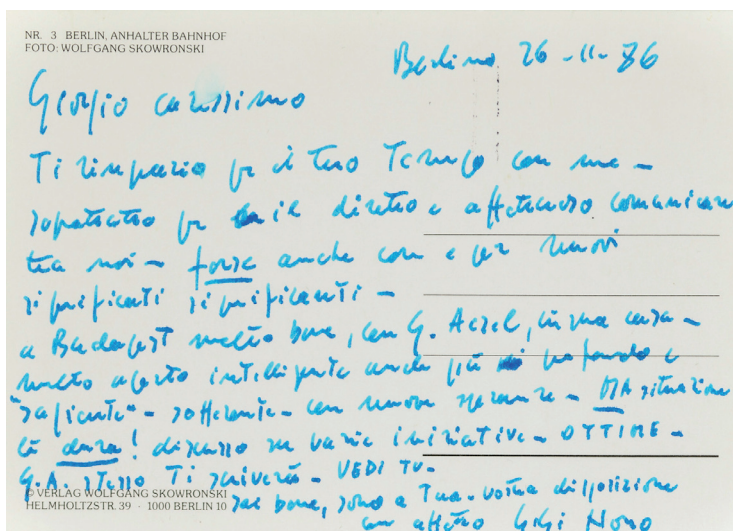 NR. 3 BERLIN, ANHALTER BAHNHOF
FOTO: WOLFGANG SKOWRONSKI
Berlino 26-11-86
Giorgio carissimo
Ti ringrazio per il tuo Tempo con me –
sopratutto per il diretto e affettuoso comunicare
tra noi – forse anche con e per nuovi
significati significanti –
a Budapest molto bene, con G. Aczel, in sua casa –
molto aperto intelligente anche più profondo e
"sapiente" – sofferente – con nuove speranze – MA situazione
là dura! discusso su varie iniziative – OTTIME –
G.A. stesso Ti scriverà – VEDI TU –
bene, sono a Tua - vostra disposizione
con affetto Gigi Nono
© VERLAG WOLFGANG SKOWRONSKI
HELMHOLTZSTR. 39 · 1000 BERLIN 10